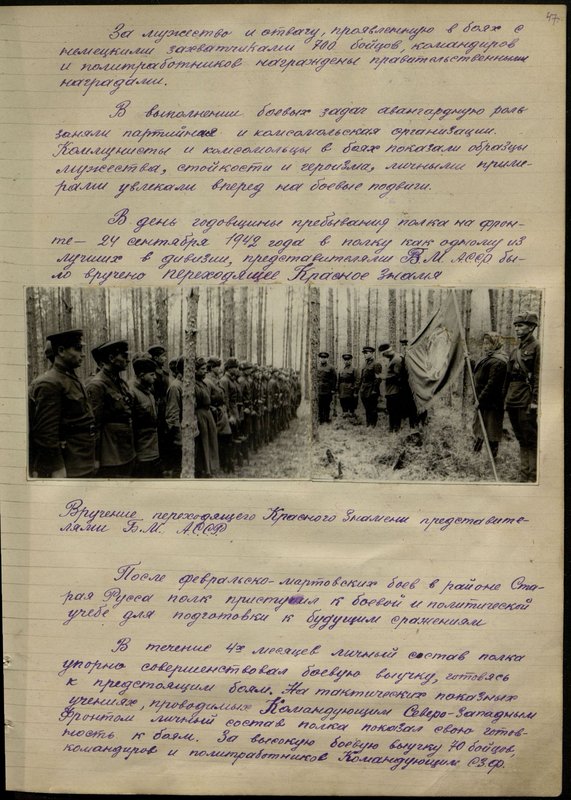 47.
За мужество и отвагу, проявленную в боях с
немецкими захватчиками 700 бойцов, командиров
и политработников награждены правительственными
наградами.
В выполнении боевых задач авангардную роль
заняли партийная и комсомольская организации.
Коммунисты и комсомольцы в боях показали образцы
мужества, стойкости и героизма, личными приме-
рами увлекали вперед на боевые подвиги.
В день годовщины пребывания полка на фрон-
те — 24 сентября 1942 года в полку как одному из
лучших в дивизии, представителями Б.М. АССР бы-
ло вручено переходящее Красное Знамя
Вручение переходящего Красного Знамени представите-
лями Б.М. АССР.
После февральско-мартовских боев в районе Ста-
рая Русса полк приступил к боевой и политической
учебе для подготовки к будущим сражениям
В течение 4х месяцев личный состав полка
упорно совершенствовал боевую выучку, готовясь
к предстоящим боям. На тактических показных
учениях, проводимых Командующим Северо-Западным
Фронтом личный состав полка показал свою готов-
ность к боям. За высокую боевую выучку 40 бойцов,
командиров и политработников Командующим СЗФ.